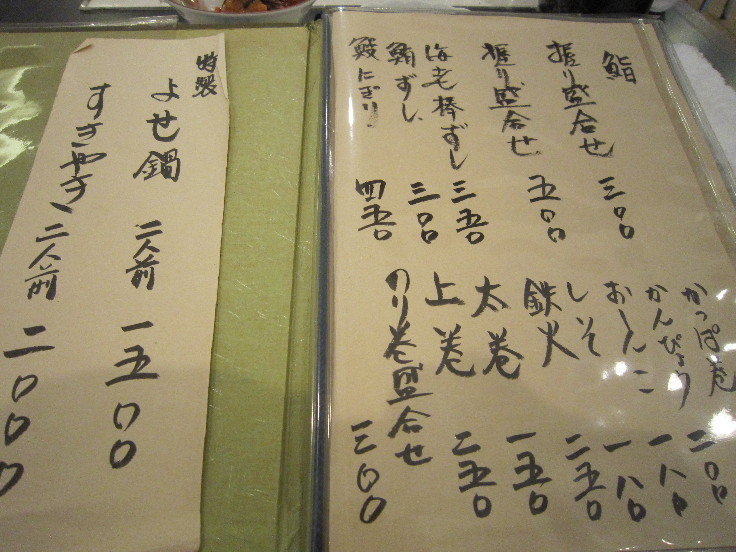 鮨
握り盛合せ 三〇〇
握り盛合せ 五〇〇
海老棒ずし 三五〇
ずし 三〇〇
にぎり 四五〇
かっぱ巻 二〇〇
かんぴょう 一八〇
おしんこ 一八〇
しそ
鉄火 二五〇
太巻 一五〇
上巻 二五〇
のり巻盛合せ 三〇〇
特製
よせ鍋 二人前 一五〇〇
すきやき 二人前 二〇〇〇